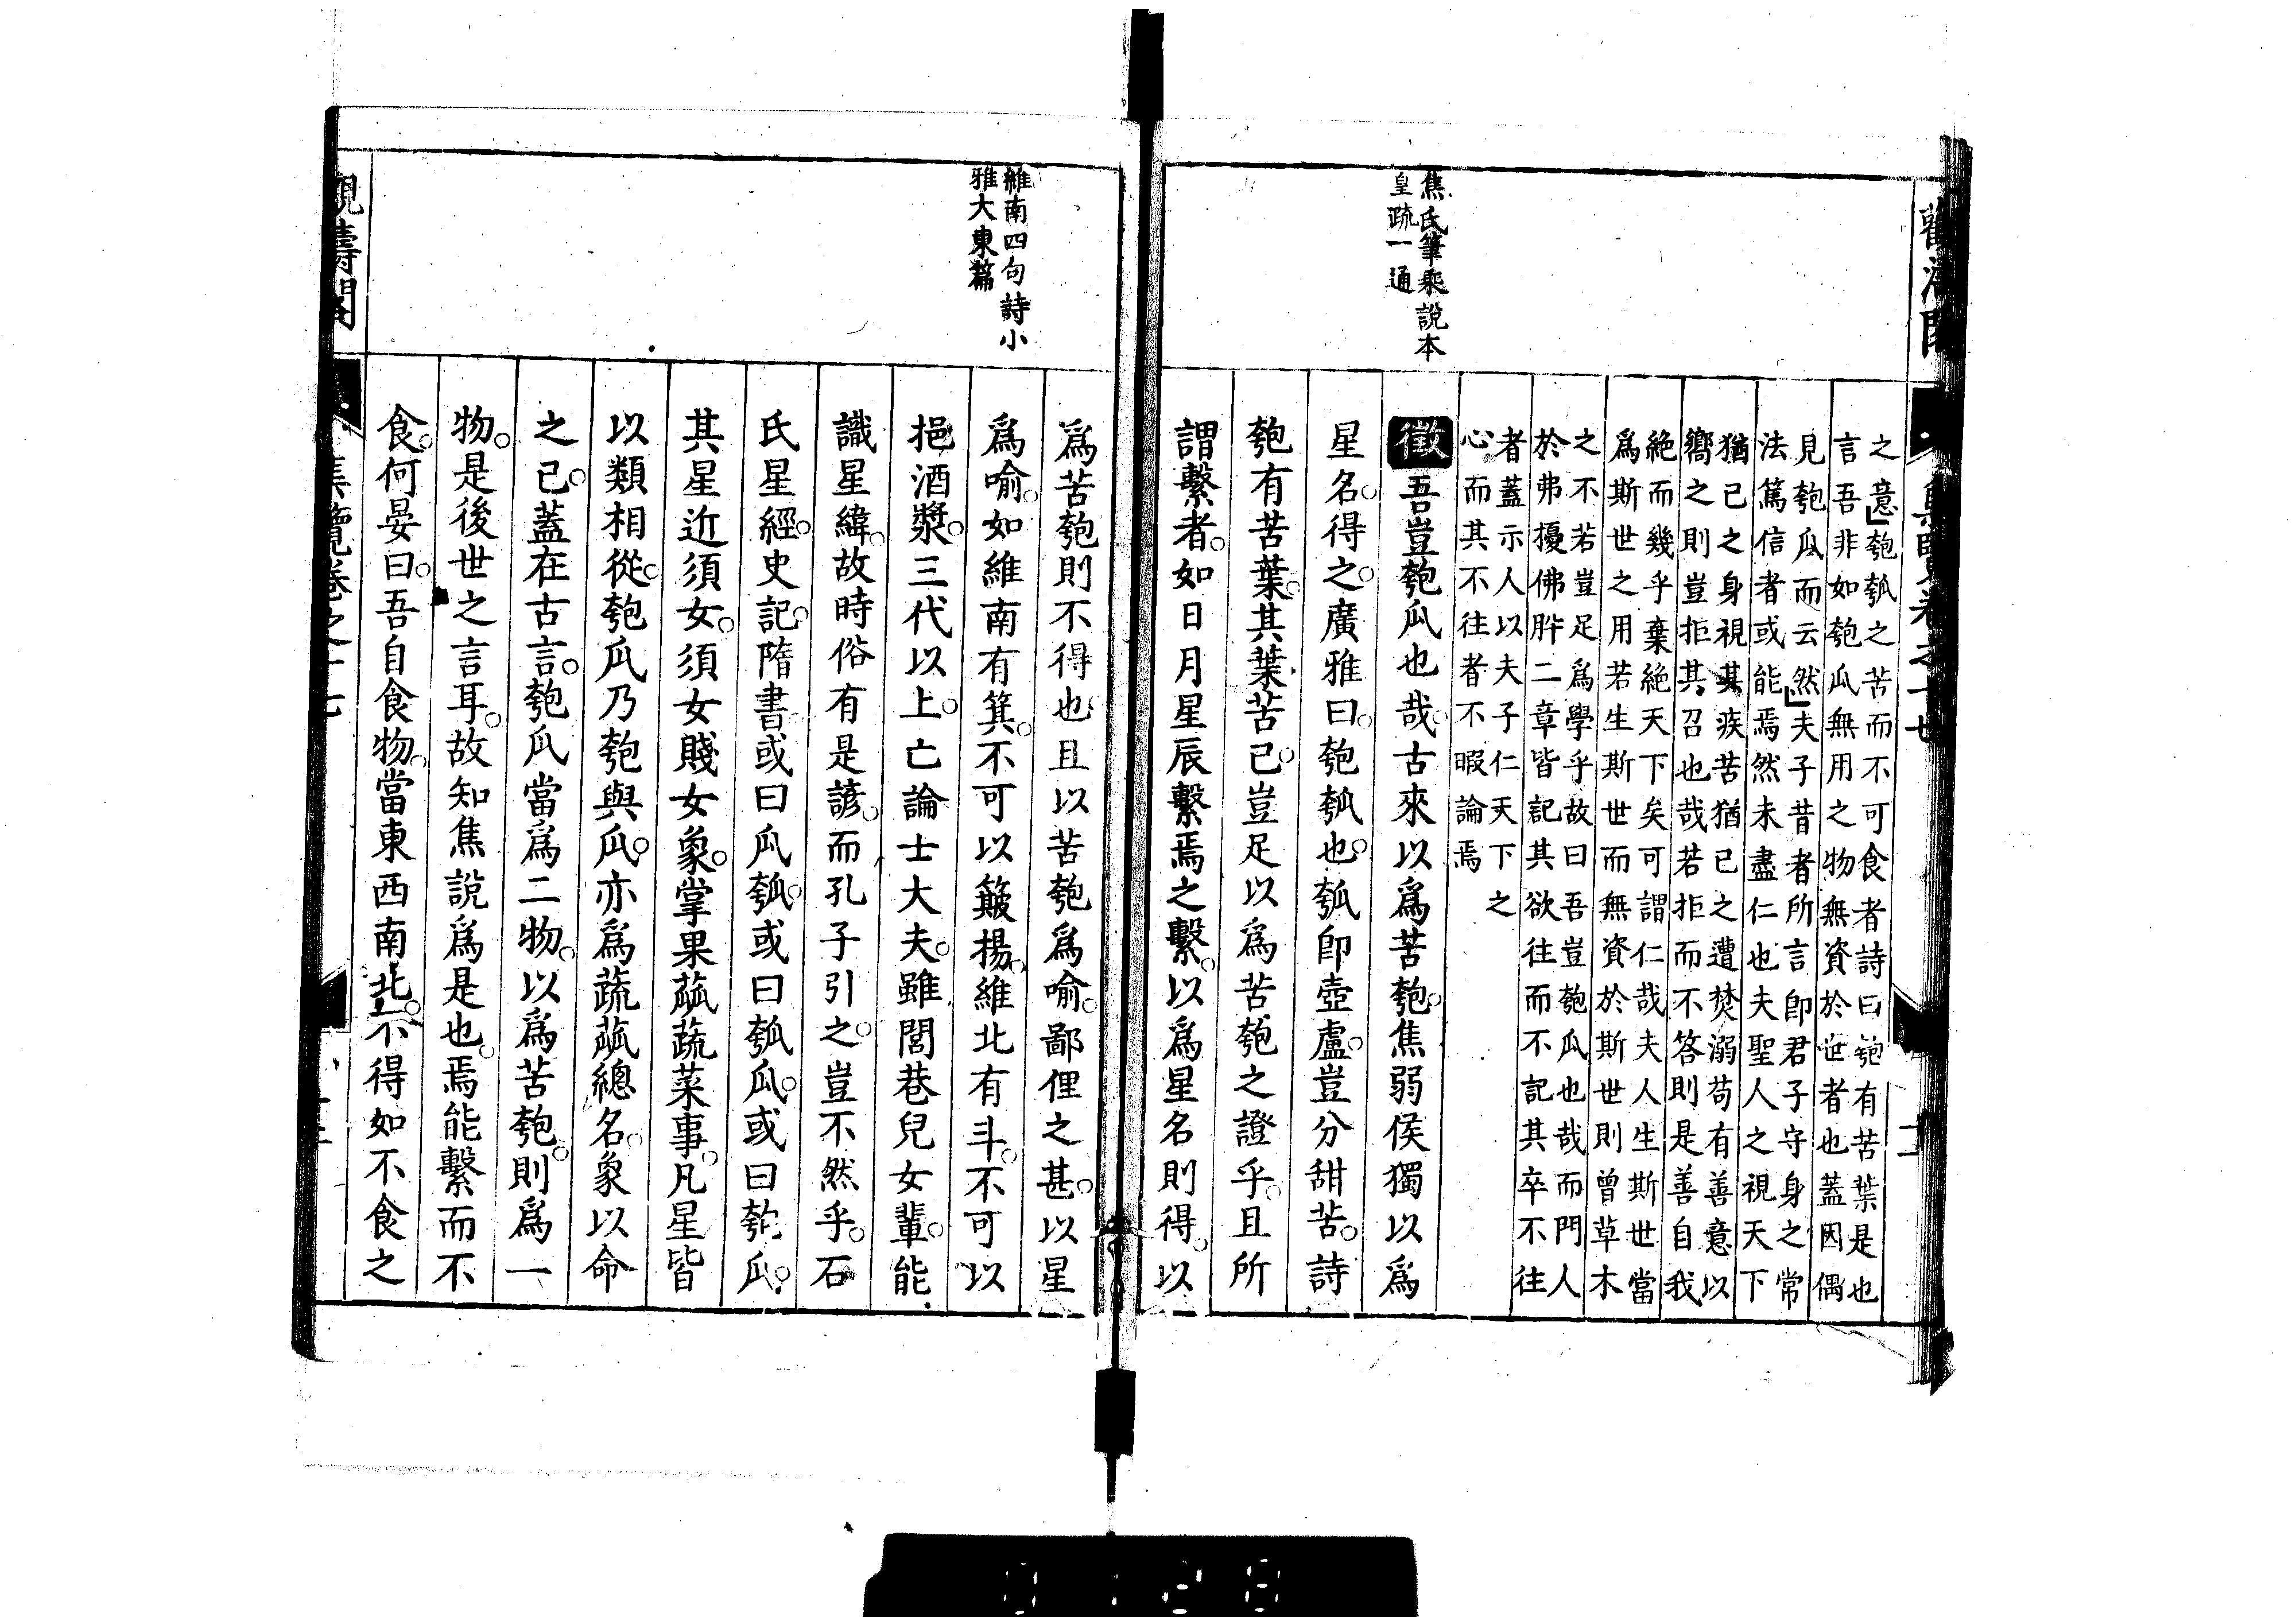 焦氏筆乘說本
皇疏一通
之意匏瓠之苦而不可食者詩曰匏有苦葉是也
言吾非如匏瓜無用之物無資於世者也蓋因偶
見匏瓜而云然夫子昔者所言卽君子守身之常
法篤信者或能焉然未盡仁也夫聖人之視天下
猶己之身視其疾苦猶己之遭焚溺苟有善意以
嚮之則豈拒其召也哉若拒而不答則是善自我
絶而幾乎棄絶天下矣可謂仁哉夫人生斯世當
爲斯世之用若生斯世而無資於斯世則曾草木
之不若豈足爲學乎故曰吾豈匏瓜也哉而門人
於弗擾佛肸二章皆記其欲往而不記其卒不往
者蓋示人以夫子仁天下之
心而其不往者不暇論焉
徵吾豈匏瓜也哉古來以爲苦匏焦弱侯獨以爲
星名得之廣雅曰匏瓠也瓠卽壺盧豈分甜苦詩
匏有苦葉其葉苦已豈足以爲苦匏之證乎且所
謂繫者如日月星辰繫焉之繫以爲星名則得以
維南四句詩小
雅大東篇
爲苦匏則不得也且以苦匏爲喻鄙俚之甚以星
爲喻如維南有箕不可以簸揚維北有斗不可以
挹酒漿三代以上亡論士大夫雖閭巷兒女輩能
識星緯故時俗有是諺而孔子引之豈不然乎石
氏星經史記隋書或曰瓜瓠或曰瓠瓜或曰匏瓜
其星近須女須女賤女象掌果蓏蔬菜事凡星皆
以類相從匏瓜乃匏與瓜亦爲蔬蓏總名象以命
之已蓋在古言匏瓜當爲二物以爲苦匏則爲一
物是後世之言耳故知焦說爲是也焉能繫而不
食何晏曰吾自食物當東西南北不得如不食之
集覽卷之十七